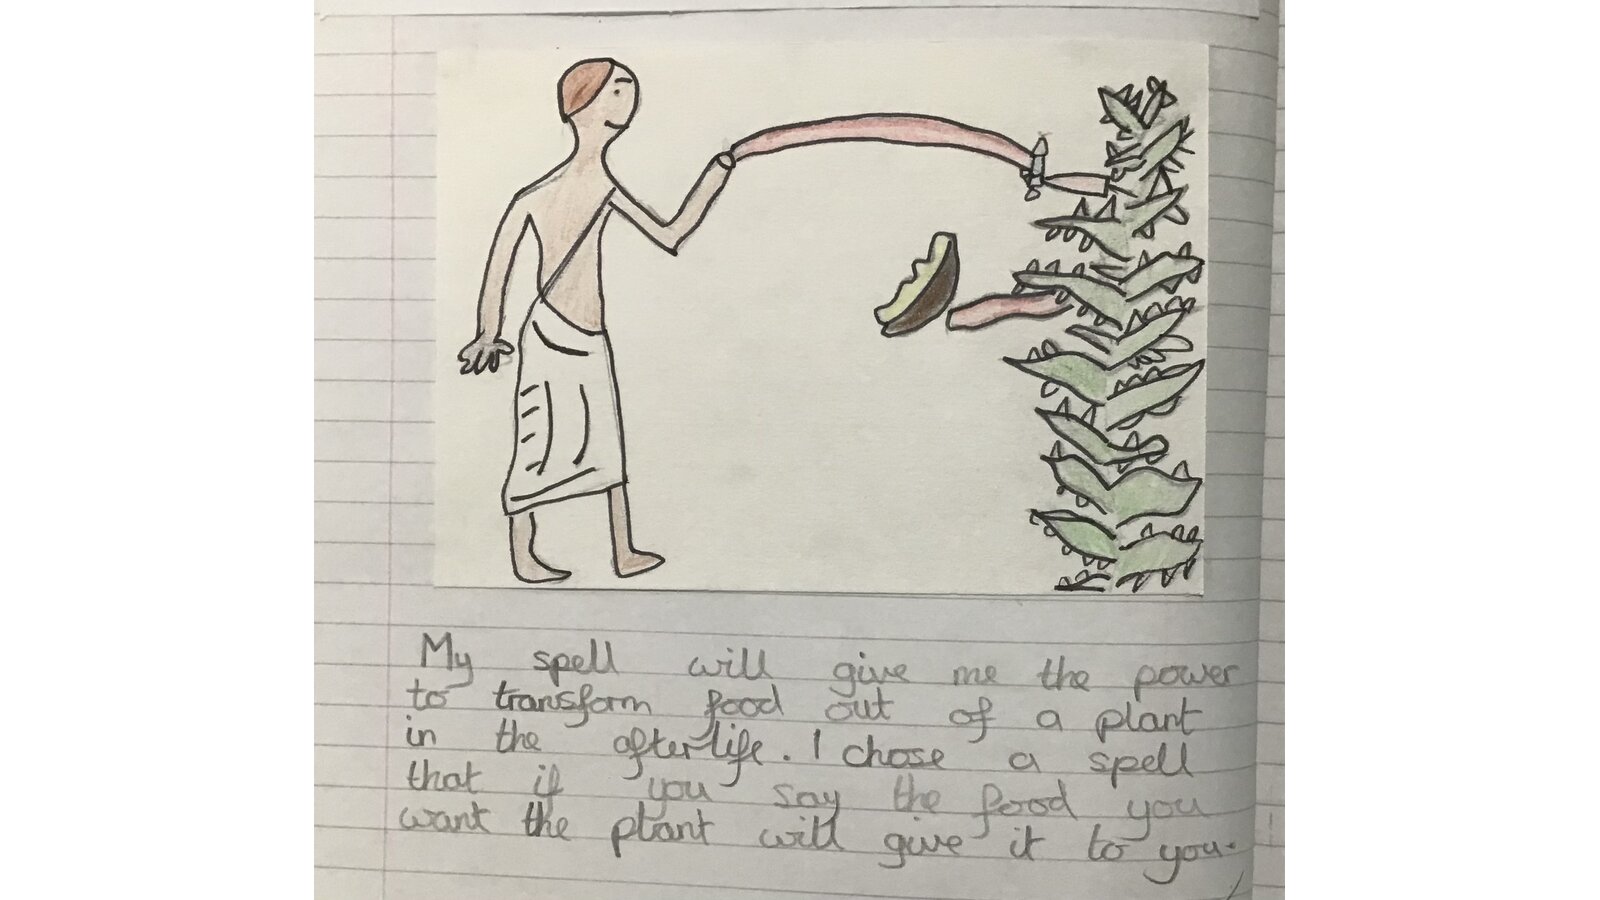 My spell will give me the power
to transform food out of a plant
in the afterlife. I chose a spell
that if you say the food you
want the plant will give it to you.